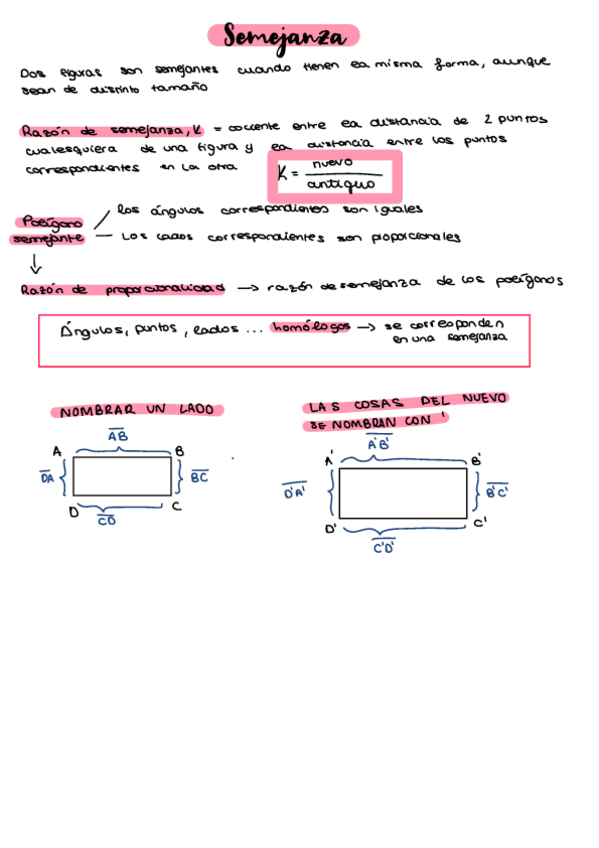 Semejanza
Dos figuras son semejantes cuando tienen la misma forma, aunque
sean de distinto tamaño
Razón de semejanza, K = cociente entre la distancia de 2 puntos
cualesquiera de una figura y la distancia entre los puntos
correspondientes en la otra
K = nuevo
antiguo
Polígono
semejante
los ángulos correspondientes son iguales
Los lados correspondientes son proporcionales
Razón de proporcionalidad → razón de semejanza de los polígonos
Ángulos, puntos, lados ... homólogos → se corresponden
en una semejanza
NOMBRAR UN LADO
LAS COSAS DEL NUEVO
SE NOMBRAN CON '
AB
A B
DA BC
D C
CD
A'B'
A' B'
D'A' B'C'
D' C'
C'D'